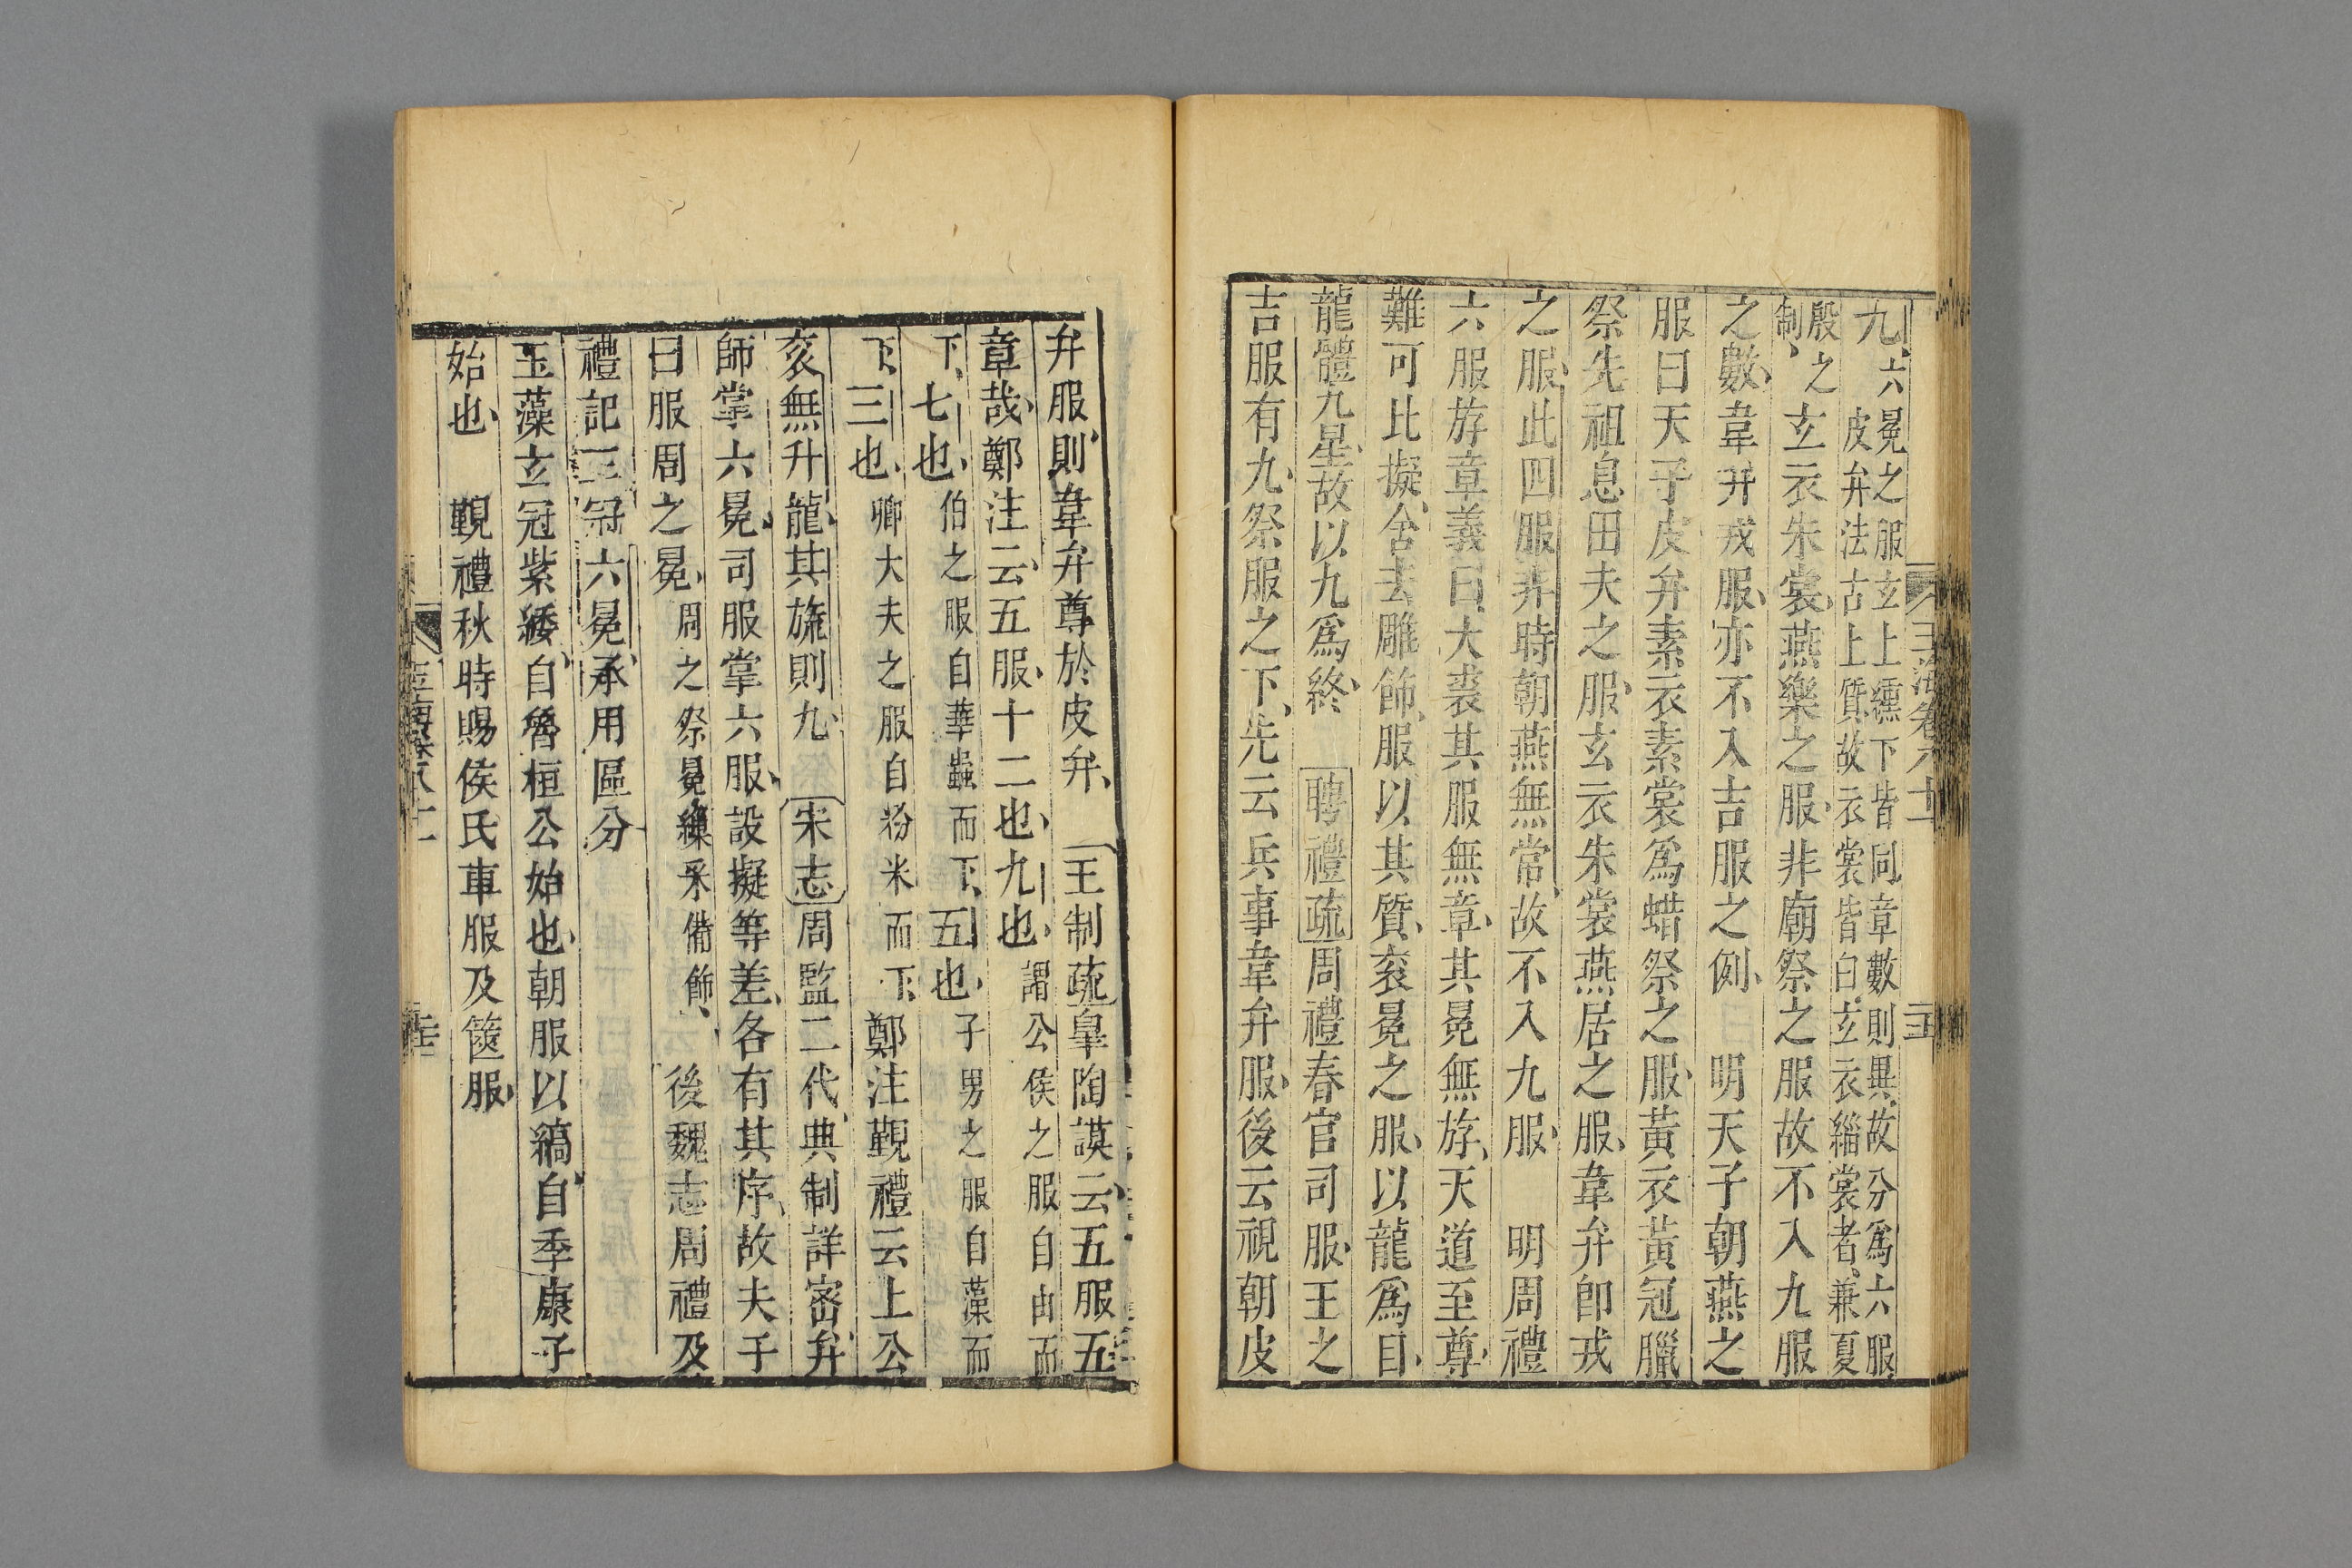 九六冕之服玄上纁下皆同章數則異故分爲六服
皮弁法古上質故衣裳皆白玄衣緇裳者兼夏
殷之制玄衣朱裳燕樂之服非廟祭之服故不入九服
之數韋弁戎服亦不入吉服之例 明天子朝燕之
服曰天子皮弁素衣素裳爲蜡祭之服黃衣黃冠臘
祭先祖息田夫之服玄衣朱裳燕居之服韋弁卽戎
之服此四服非時朝燕無常故不入九服 明周禮
六服斿章義曰大裘其服無章其冕無斿天道至尊
難可比擬舍去雕飾服以其質袞冕之服以龍爲目
龍體九星故以九爲終 聘禮疏周禮春官司服王之
吉服有九祭服之下先云兵事韋弁服後云視朝皮
弁服則韋弁尊於皮弁 王制疏臯陶謨云五服五
章哉鄭注云五服十二也九也謂公侯之服自由而
下七也伯之服自華蟲而下五也子男之服自藻而
下三也卿大夫之服自粉米而下鄭注覲禮云上公
袞無升龍其旒則九 宋志周監二代典制詳密弁
師掌六冕司服掌六服設擬等差各有其序故夫子
曰服周之冕周之祭冕繅采備飾 後魏志周禮及
禮記三冠六冕承用區分
玉藻玄冠紫緌自魯桓公始也朝服以縞自季康子
始也 覲禮秋時賜侯氏車服及篋服
玉海卷八十一